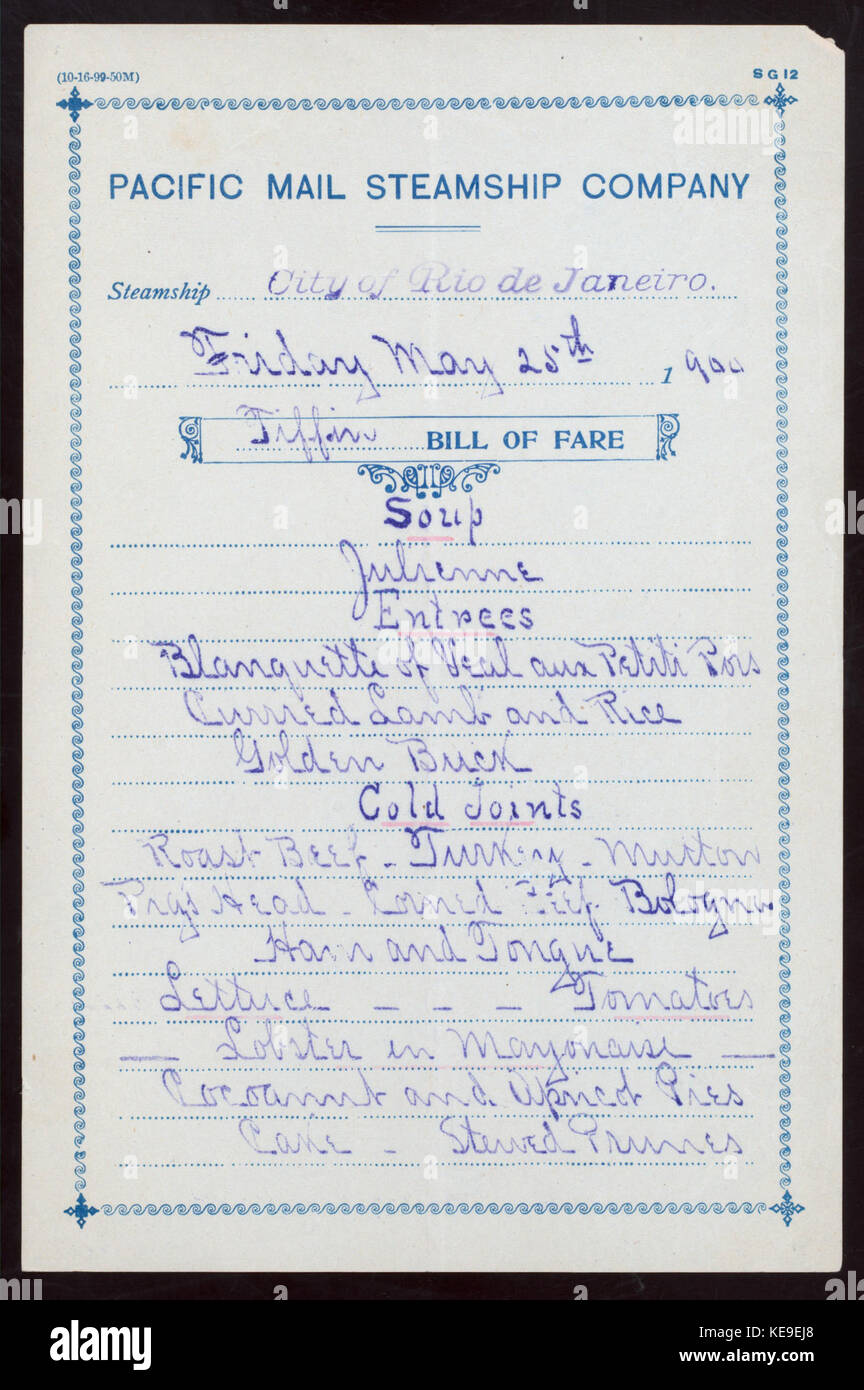 (10-16-99-50M) SG12
PACIFIC MAIL STEAMSHIP COMPANY
Steamship City of Rio de Janeiro.
Friday May 25th 1900
Tiffin BILL OF FARE
Soup
Julienne
Entrees
Blanquette of Veal aux Petiti Pois
Curried Lamb and Rice
Golden Buck
Cold Joints
Roast Beef - Turkey - Mutton
Pigs Head - Corned Beef Bologna
Ham and Tongue
Lettuce - - - Tomatoes
— Lobster in Mayonaise —
Cocoanut and Apricot Pies
Cake - Stewed Prunes
alamy
Image ID: KE9EJ8
www.alamy.com